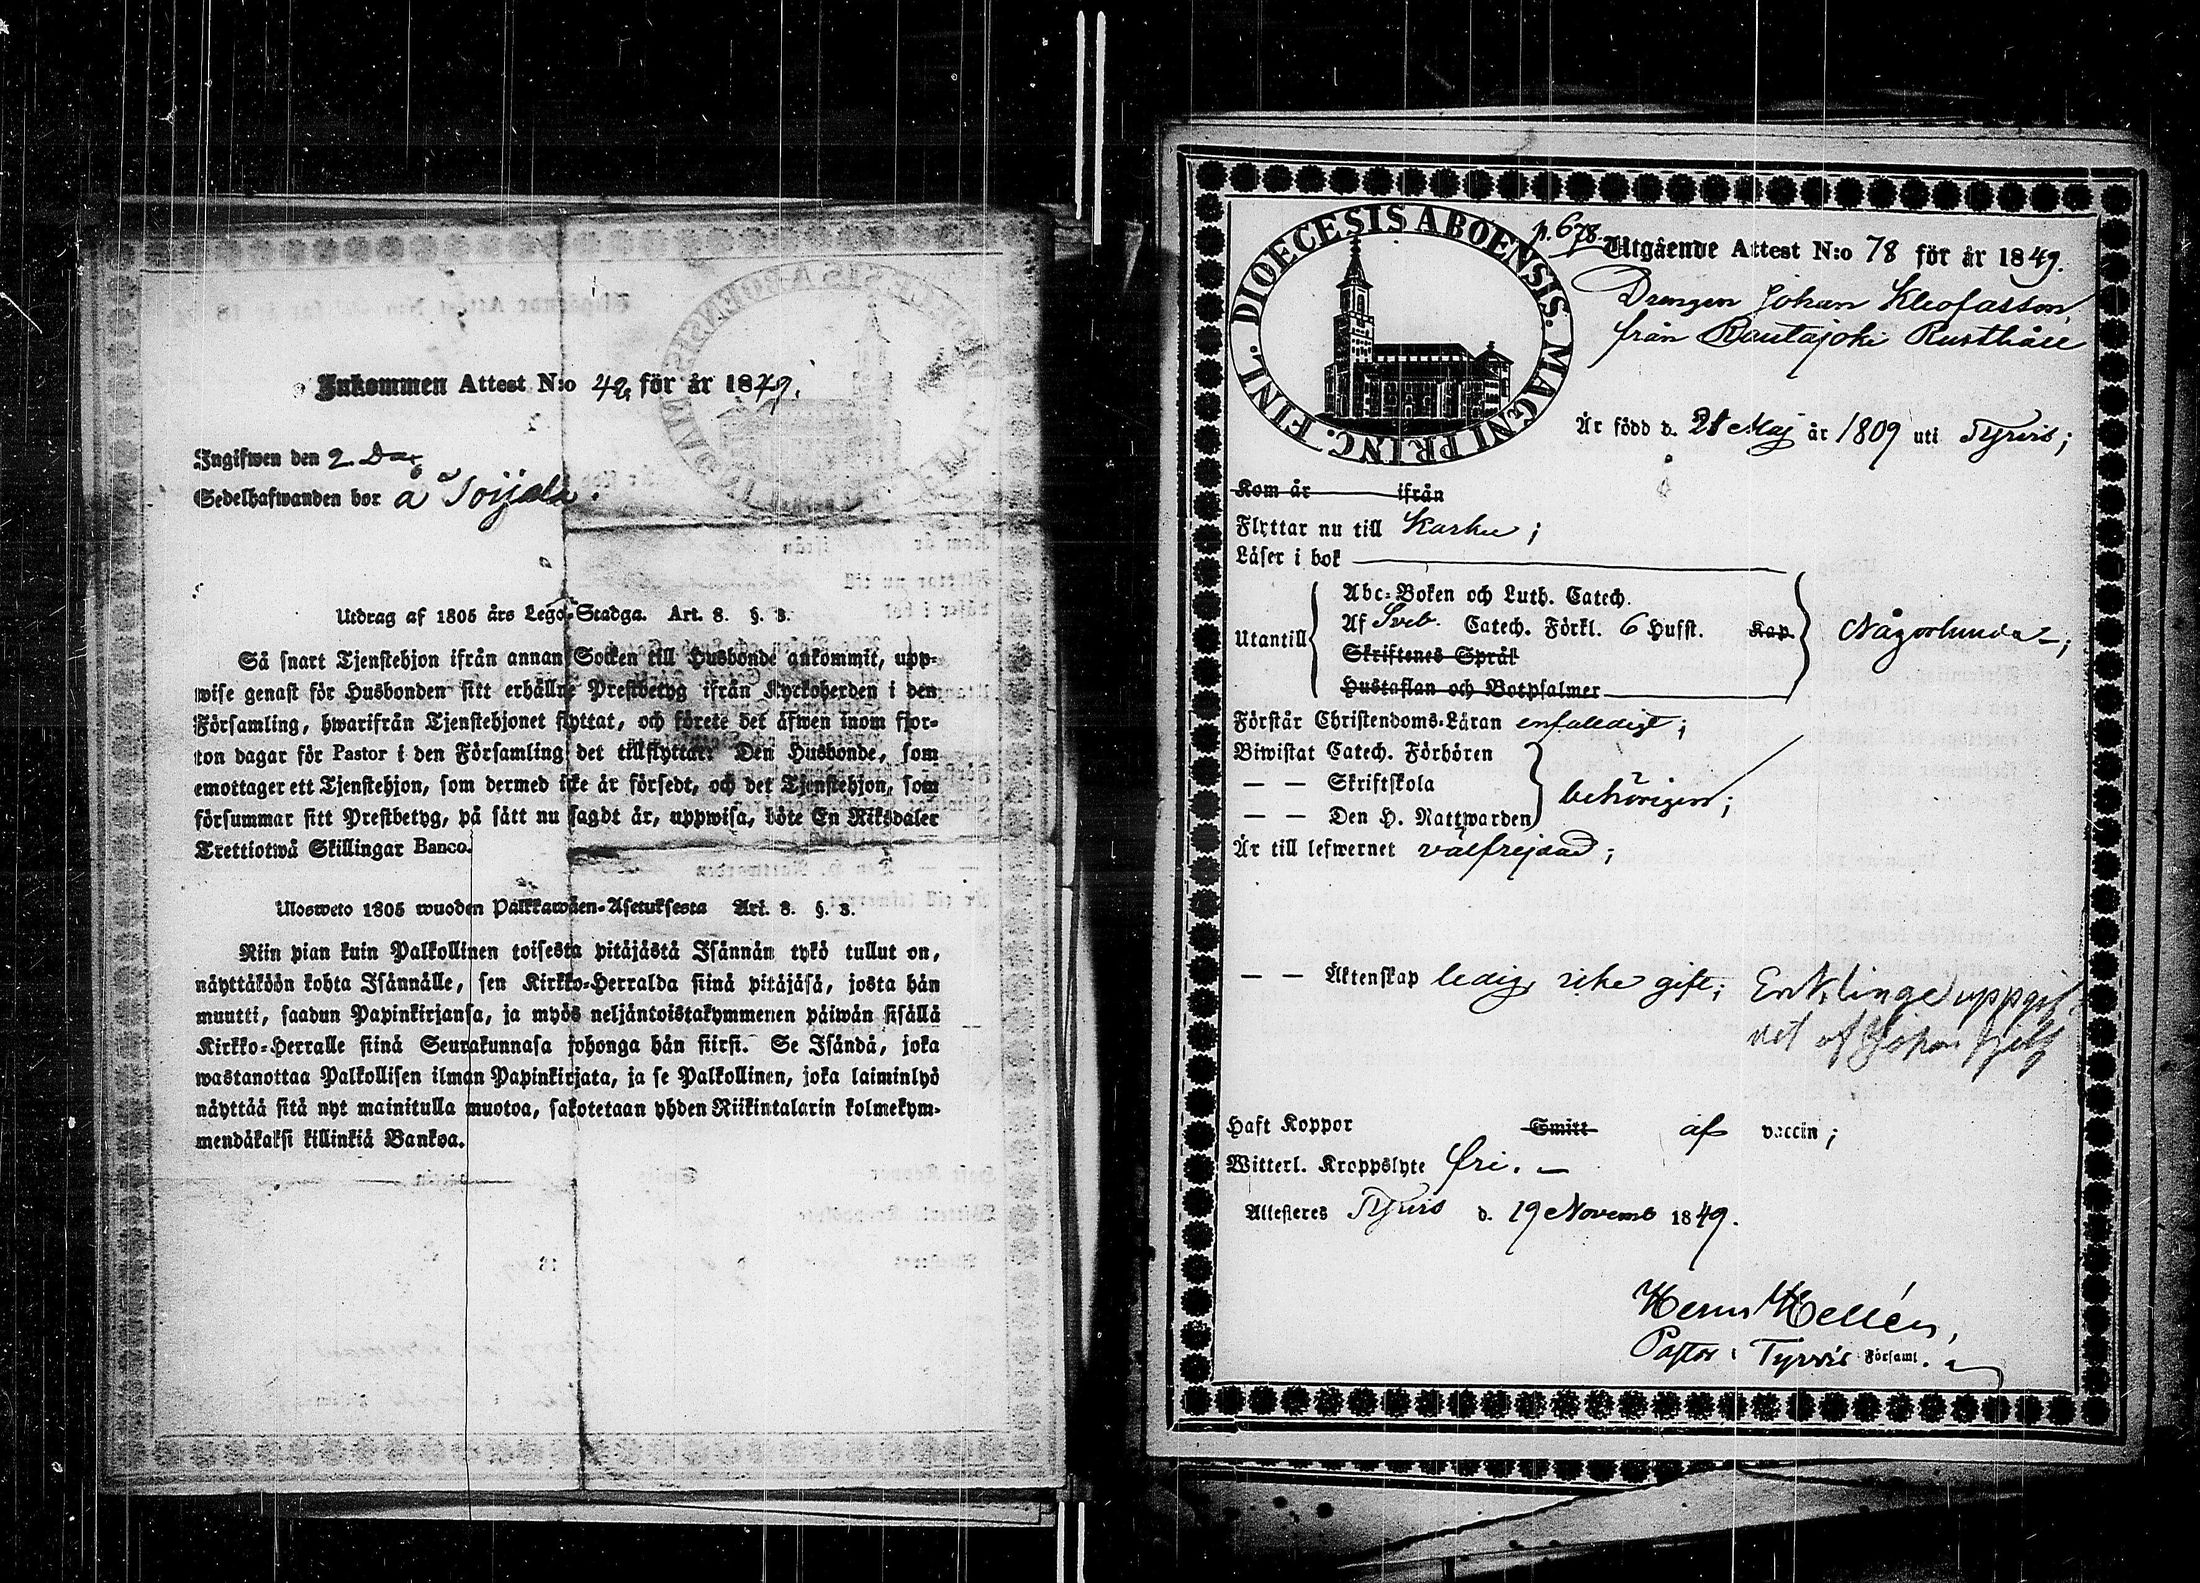 Inkommen Attest N:o 42, för år 1849.
Ingifwen den 2 Dec
Sedelhafwanden bor å Toijala.
Utdrag af 1805 års Lego-Stadga. Art. 8. §. 3.
Så snart Tjenstehjon ifrån annan Socken till Husbonde ankommit, upp-
wise genast för Husbonden sitt erhållne Prestbetyg ifrån Kyrkoherden i den
Församling, hwarifrån Tjenstehjonet flyttat, och förete det äfwen inom fjor-
ton dagar för Pastor i den Församling det tillflyttar. Den Husbonde, som
emottager ett Tjenstehjon, som dermed icke är försedt, och det Tjenstehjon, som
försummar sitt Prestbetyg, på sätt nu sagdt är, uppwisa, böte En Riksdaler
Trettiotwå Skillingar Banco.
Ulosweto 1805 wuoden Palkkawäen-Asetuksesta Art. 8. §. 3.
Niin pian kuin Palkollinen toisesta pitäjästä Isännän tykö tullut on,
näyttäköön kohta Isännälle, sen Kirkko-Herralda siinä pitäjäsä, josta hän
muutti, saadun Papinkirjansa, ja myös neljäntoistakymmenen päiwän sisällä
Kirkko-Herralle siinä Seurakunnasa johonga hän siirsi. Se Isändä, joka
wastanottaa Palkollisen ilman Papinkirjata, ja se Palkollinen, joka laiminlyö
näyttää sitä nyt mainitulla muotoa, sakotetaan yhden Riikintalarin kolmekym-
mendäkaksi killinkiä Bankoa.
DIOECESIS ABOENSIS. MAGNI PRINC. FINL.
p. 678.
Utgående Attest N:o 78 för år 1849.
Drengen Johan Kleofasson,
från Rautajoki Rusthåll
Är född d. 28 Maj år 1809 uti Tyrvis;
Kom år ifrån
Flyttar nu till Karku;
Läser i bok
Abc-Boken och Luth. Catech.
Utantill Af Sveb. Catech. Förkl. 6 Hufst. Kap. Någorlunda;
Skriftenes Språk
Hustaflan och Botpsalmer
Förstår Christendoms-Läran enfalldigt;
Biwistat Catech. Förhören
— — Skriftskola behörigen;
— — Den H. Nattwarden
Är till lefwernet välfrejdad;
— — Äktenskap ledig, icke gift; Enklinge uppgif
vet af Johan sjelf
Haft Koppor Smitt af vaccin;
Witterl. Kroppslyte fri. —
Attesteres Tyrvis d. 19 Novemb 1849.
Herm Hellén,
Pastor i Tyrvis Församl.